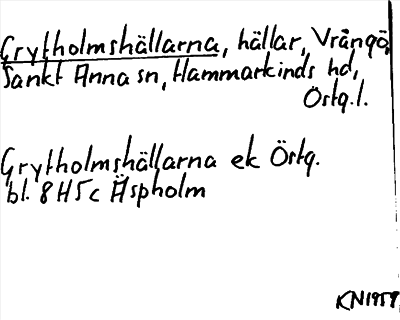 Grytholmshällarna, hällar, Vrångö,
Sankt Anna sn, Hammarkinds hd,
Östg.l.
Grytholmshällarna ek Östg.
bl. 8H5c Äspholm
KN1959